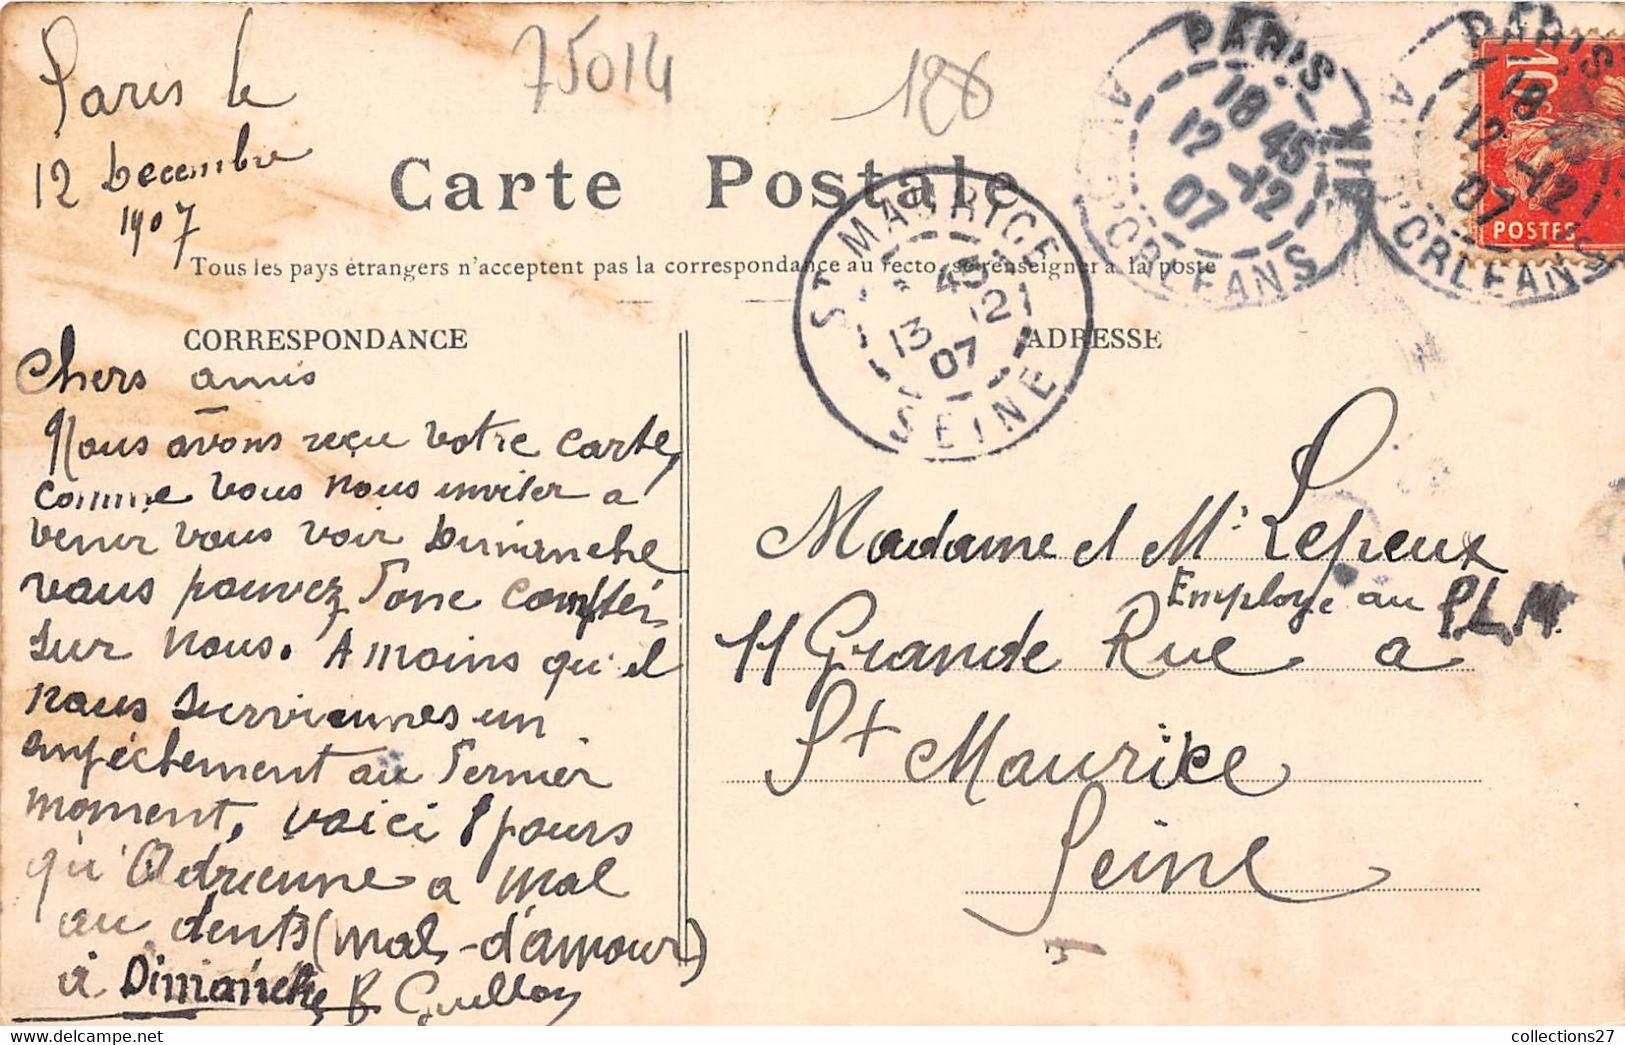 Paris le
12 Decembre
1907
75014
186
Carte Postale
Tous les pays étrangers n'acceptent pas la correspondance au recto, se renseigner à la poste
PARIS XIV
18 45
12 -12
07
AV. D'ORLEANS
PARIS
18 45
12 -12
07
AV. D'ORLEANS
10c
POSTES
ST MAURICE
45
13 12
07
SEINE
CORRESPONDANCE
Chers amis
Nous avons reçu votre carte,
comme vous nous inviter a
venir vous voir Dimanche
vous pouvez Donc compter
sur nous. A moins qu'il
nous surviennes un
anpéchement au Dernier
moment, voici 8 jours
qu'Adrienne a mal
au dents (mal-d'amour)
à Dimanche B Guillon
ADRESSE
Madame et Mr Lepeux
Employe au P.L.M.
11 Grande Rue a
St Maurice
Seine
collections27